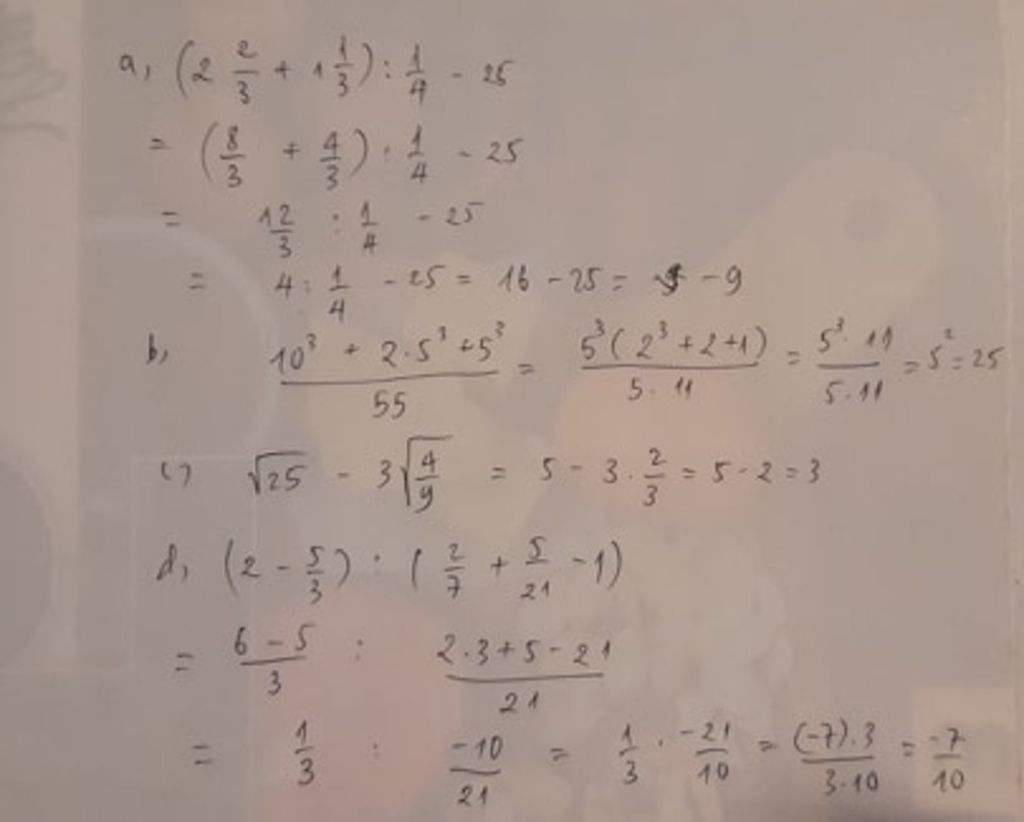 a, (2 2/3 + 1 1/3) : 1/4 - 25
= (8/3 + 4/3) : 1/4 - 25
= 12/3 : 1/4 - 25
= 4 : 1/4 - 25 = 16 - 25 = -9
b, (10³ + 2·5³ + 5³)/55 = 5³(2³ + 2 + 1)/(5·11) = (5³·11)/(5·11) = 5² = 25
c) √25 - 3√(4/9) = 5 - 3·2/3 = 5 - 2 = 3
d, (2 - 5/3) : (2/7 + 5/21 - 1)
= (6 - 5)/3 : (2·3 + 5 - 21)/21
= 1/3 : -10/21 = 1/3 · -21/10 = ((-7)·3)/(3·10) = -7/10